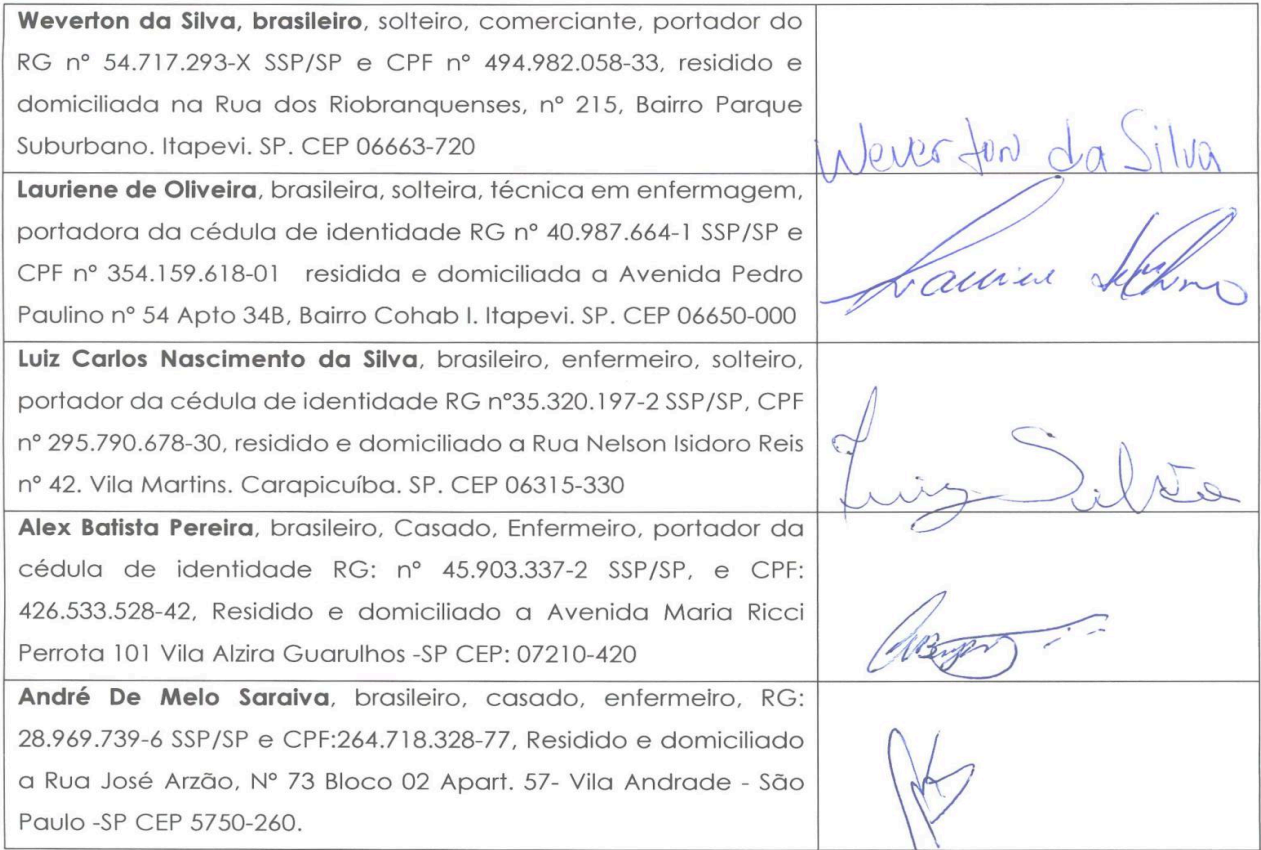 Weverton da Silva, brasileiro, solteiro, comerciante, portador do
RG nº 54.717.293-X SSP/SP e CPF nº 494.982.058-33, residido e
domiciliada na Rua dos Riobranquenses, nº 215, Bairro Parque
Suburbano. Itapevi. SP. CEP 06663-720
Weverton da Silva
Lauriene de Oliveira, brasileira, solteira, técnica em enfermagem,
portadora da cédula de identidade RG nº 40.987.664-1 SSP/SP e
CPF nº 354.159.618-01 residida e domiciliada a Avenida Pedro
Paulino nº 54 Apto 34B, Bairro Cohab I. Itapevi. SP. CEP 06650-000
Luiz Carlos Nascimento da Silva, brasileiro, enfermeiro, solteiro,
portador da cédula de identidade RG nº35.320.197-2 SSP/SP, CPF
nº 295.790.678-30, residido e domiciliado a Rua Nelson Isidoro Reis
nº 42. Vila Martins. Carapicuíba. SP. CEP 06315-330
Luiz
Alex Batista Pereira, brasileiro, Casado, Enfermeiro, portador da
cédula de identidade RG: nº 45.903.337-2 SSP/SP, e CPF:
426.533.528-42, Residido e domiciliado a Avenida Maria Ricci
Perrota 101 Vila Alzira Guarulhos -SP CEP: 07210-420
André De Melo Saraiva, brasileiro, casado, enfermeiro, RG:
28.969.739-6 SSP/SP e CPF:264.718.328-77, Residido e domiciliado
a Rua José Arzão, Nº 73 Bloco 02 Apart. 57- Vila Andrade - São
Paulo -SP CEP 5750-260.